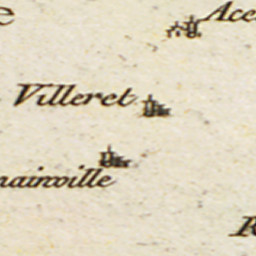 e
Ace
Villeret
nainville
R